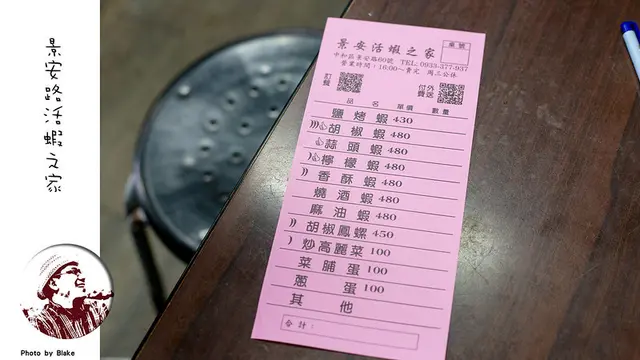 景安路活蝦之家
Photo by Blake
景安活蝦之家
桌號
中和區景安路60號 TEL: 0933-377-937
營業時間：16:00～賣完 周三公休
訂餐
付費
外送
品名 單價 數量
鹽烤蝦 430
胡椒蝦 480
蒜頭蝦 480
檸檬蝦 480
香酥蝦 480
燒酒蝦 480
麻油蝦 480
胡椒鳳螺 450
炒高麗菜 100
菜脯蛋 100
蔥蛋 100
其他
合計：